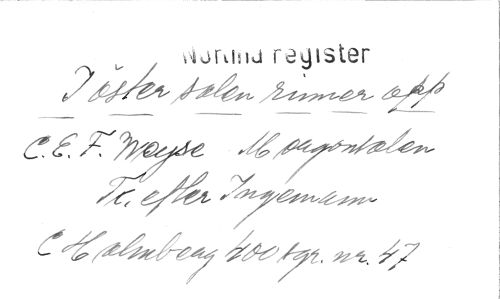 Norma register
I öster solen rinner opp
C. E. F. Weyse Morgonsolen
Tr. efter Ingemann
C Holmberg 400 sgr. nr. 47